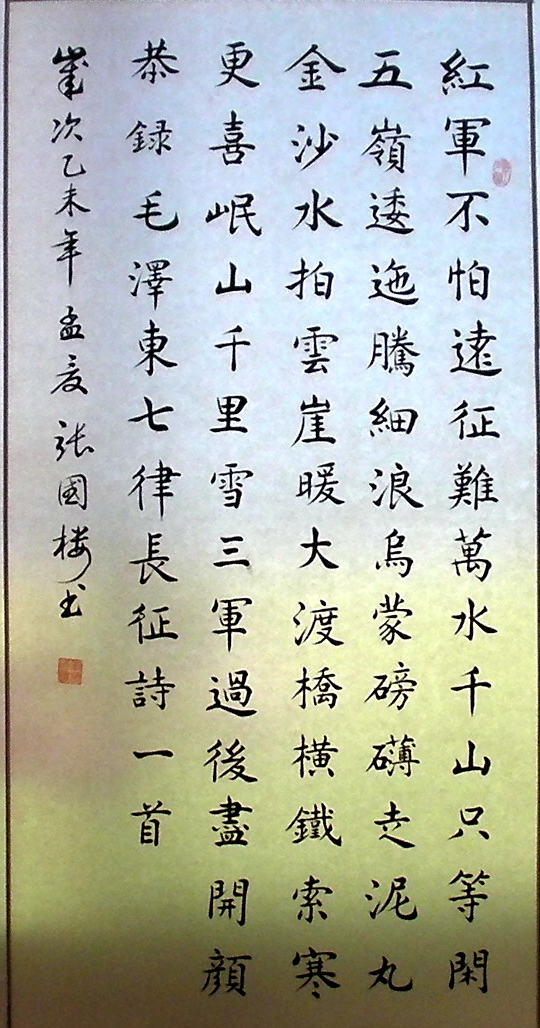 紅軍不怕遠征難萬水千山只等閑
五嶺逶迤騰細浪烏蒙磅礴走泥丸
金沙水拍雲崖暖大渡橋橫鐵索寒
更喜岷山千里雪三軍過後盡開顏
恭録毛澤東七律長征詩一首
歲次乙未年孟夏張國楼书